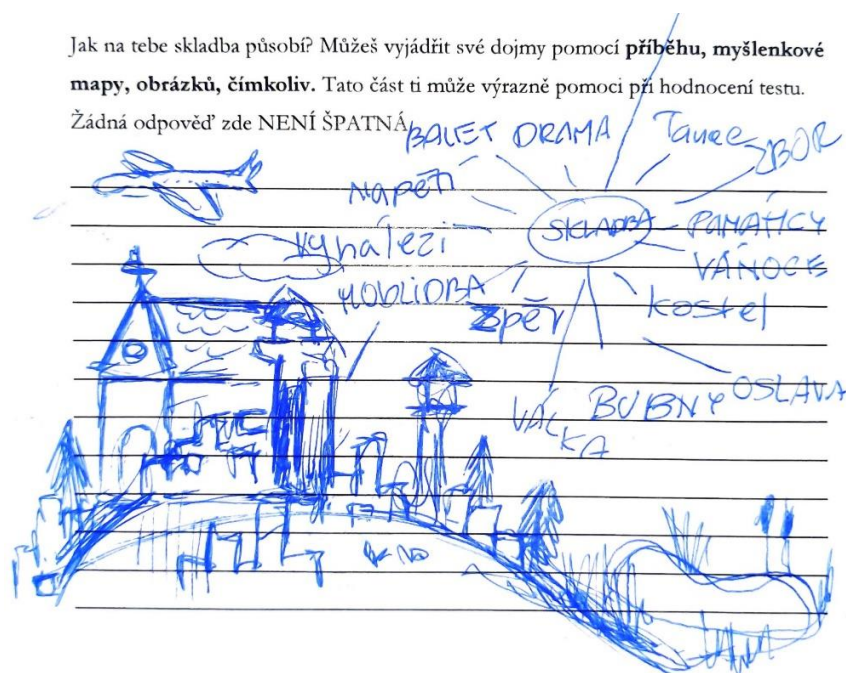 Jak na tebe skladba působí? Můžeš vyjádřit své dojmy pomocí příběhu, myšlenkové
mapy, obrázků, čímkoliv. Tato část ti může výrazně pomoci při hodnocení testu.
Žádná odpověď zde NENÍ ŠPATNÁ.
BALET DRAMA Tanec ZBOR
Napětí
SKLADBA PAMÁTKY
Vynálezi VÁNOCE
MODLIDBA Zpěv kostel
VÁLKA BUBNY OSLAVA